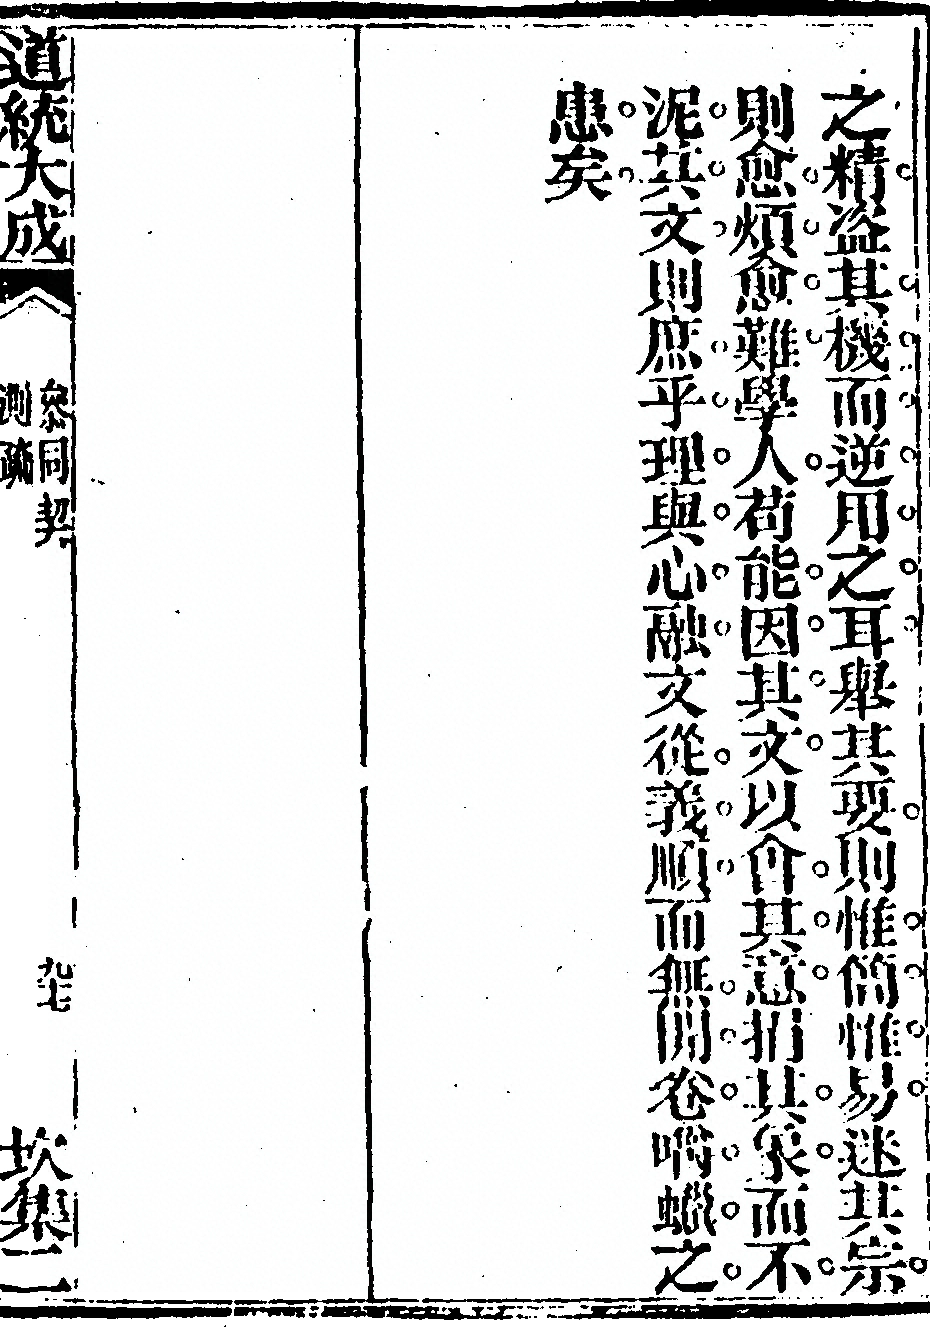 之精盜其機而逆用之耳舉其要則惟簡惟易迷其宗
則愈煩愈難學人苟能因其文以會其意捐其象而不
泥其文則庶乎理與心融文從義順而無開卷嚼蠟之
患矣
道統大成
參同契
測疏
九七
坎集二